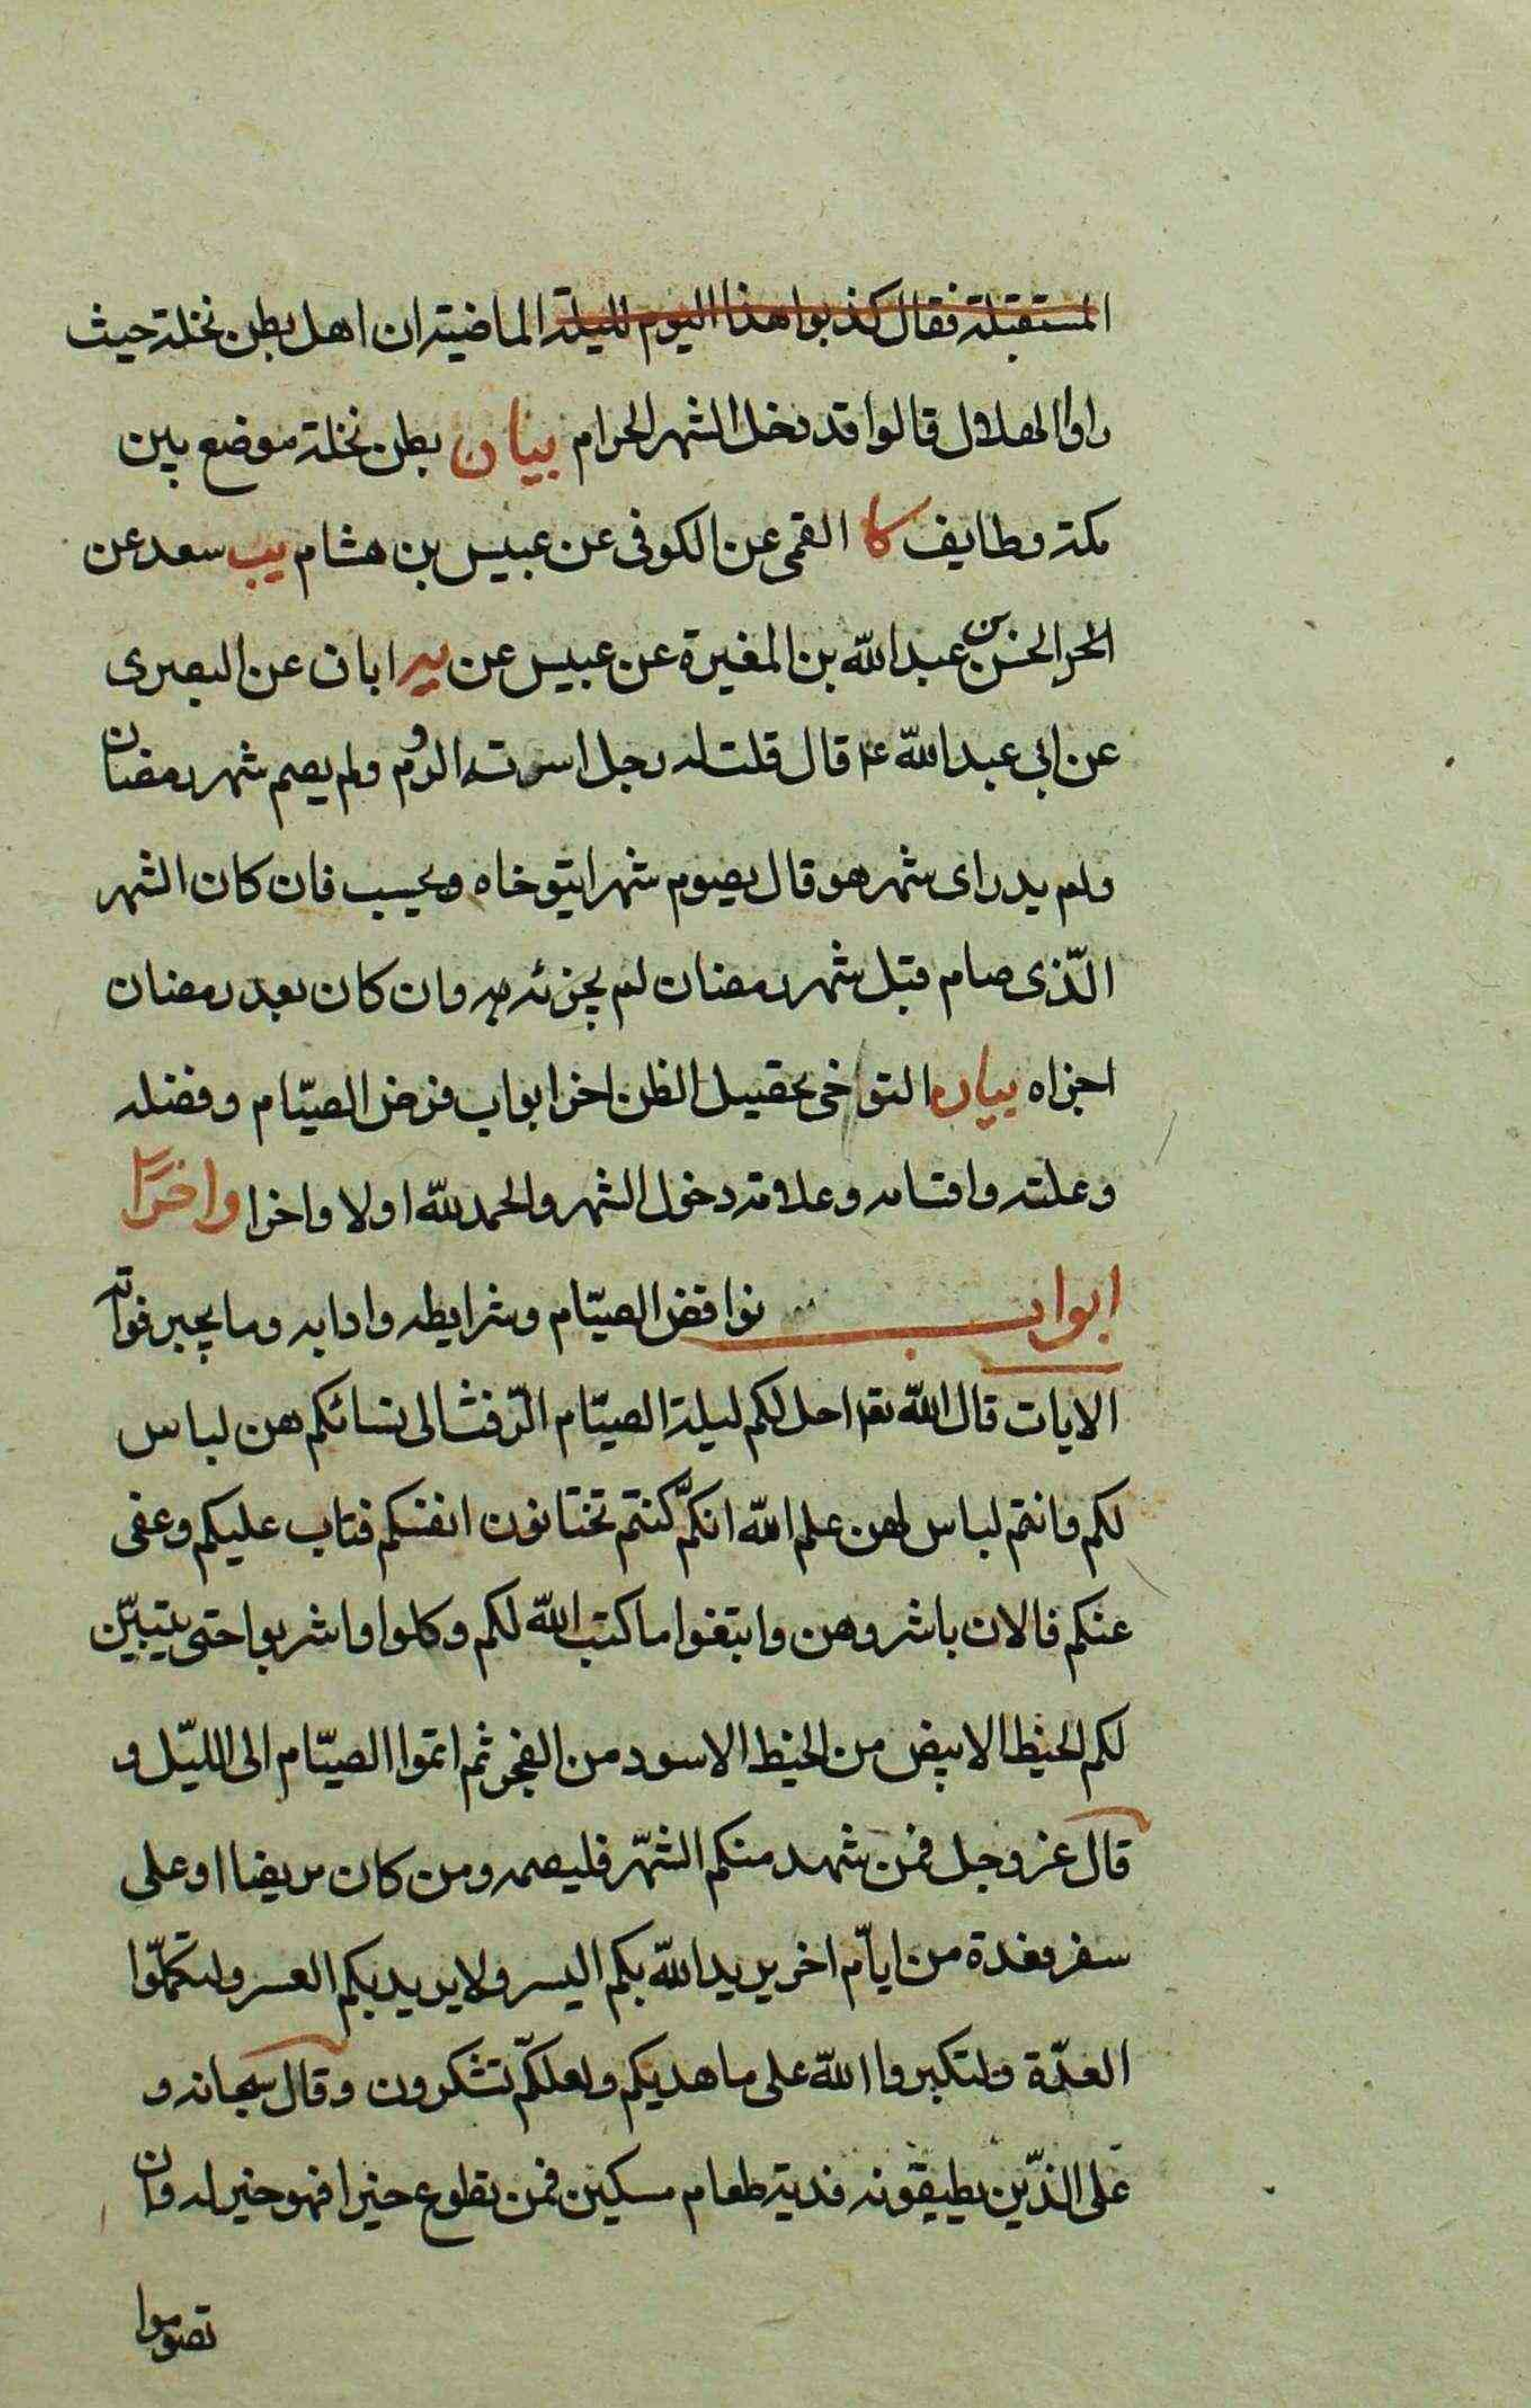 المستقبلة فقال كذبوا هذا اليوم لليلة الماضية ان اهل بطن نخلة حيث
راوا الهلال قالوا قد دخل الشهر الحرام بيان بطن نخلة موضع بين
مكة وطايف كا القمى عن الكوفى عن عبيس بن هشام يب سعد عن
الحسن بن عبدالله بن المغيرة عن عبيس عن يه ابان عن البصرى
عن ابي عبدالله ع قال قلت له رجل اسرته الروم ولم يصم شهر رمضان
ولم يدر اى شهر هو قال يصوم شهرا يتوخاه ويحسب فان كان الشهر
الّذى صام قبل شهر رمضان لم يجزئه به وان كان بعد رمضان
اجزاه بيان التواخى تحصيل الظن اخر ابواب فرض الصيّام وفضله
وعلته واقسامه وعلامة دخول الشهر والحمد للّه اولا واخرا واخرًا
ابواب نواقض الصيّام وشرايطه وادابه وما يجبر فواته
الايات قال اللّه تعم احل لكم ليلة الصيّام الرّفث الى نسائكم هن لباس
لكم وانتم لباس لهن علم اللّه انكمّ كنتم تختانون انفسكم فتاب عليكم وعفى
عنكم فالان باشروهن وابتغوا ما كتب اللّه لكم وكلوا واشربوا حتى يتبيّن
لكم الخيط الابيض من الخيط الاسود من الفجر ثم اتموا الصيّام الى الليّل و
قال عز وجل فمن شهد منكم الشهّر فليصمه ومن كان مريضا او على
سفر فعدة من ايّام اخر يريد اللّه بكم اليسر ولا يريد بكم العسر ولتكملّوا
العدّة ولتكبروا اللّه على ما هديكم ولعلكمّ تشكرون وقال سبحانه و
على الذّين يطيقونه فدية طعام مسكين فمن تطوع خيرا فهو خير له وان
تصوموا